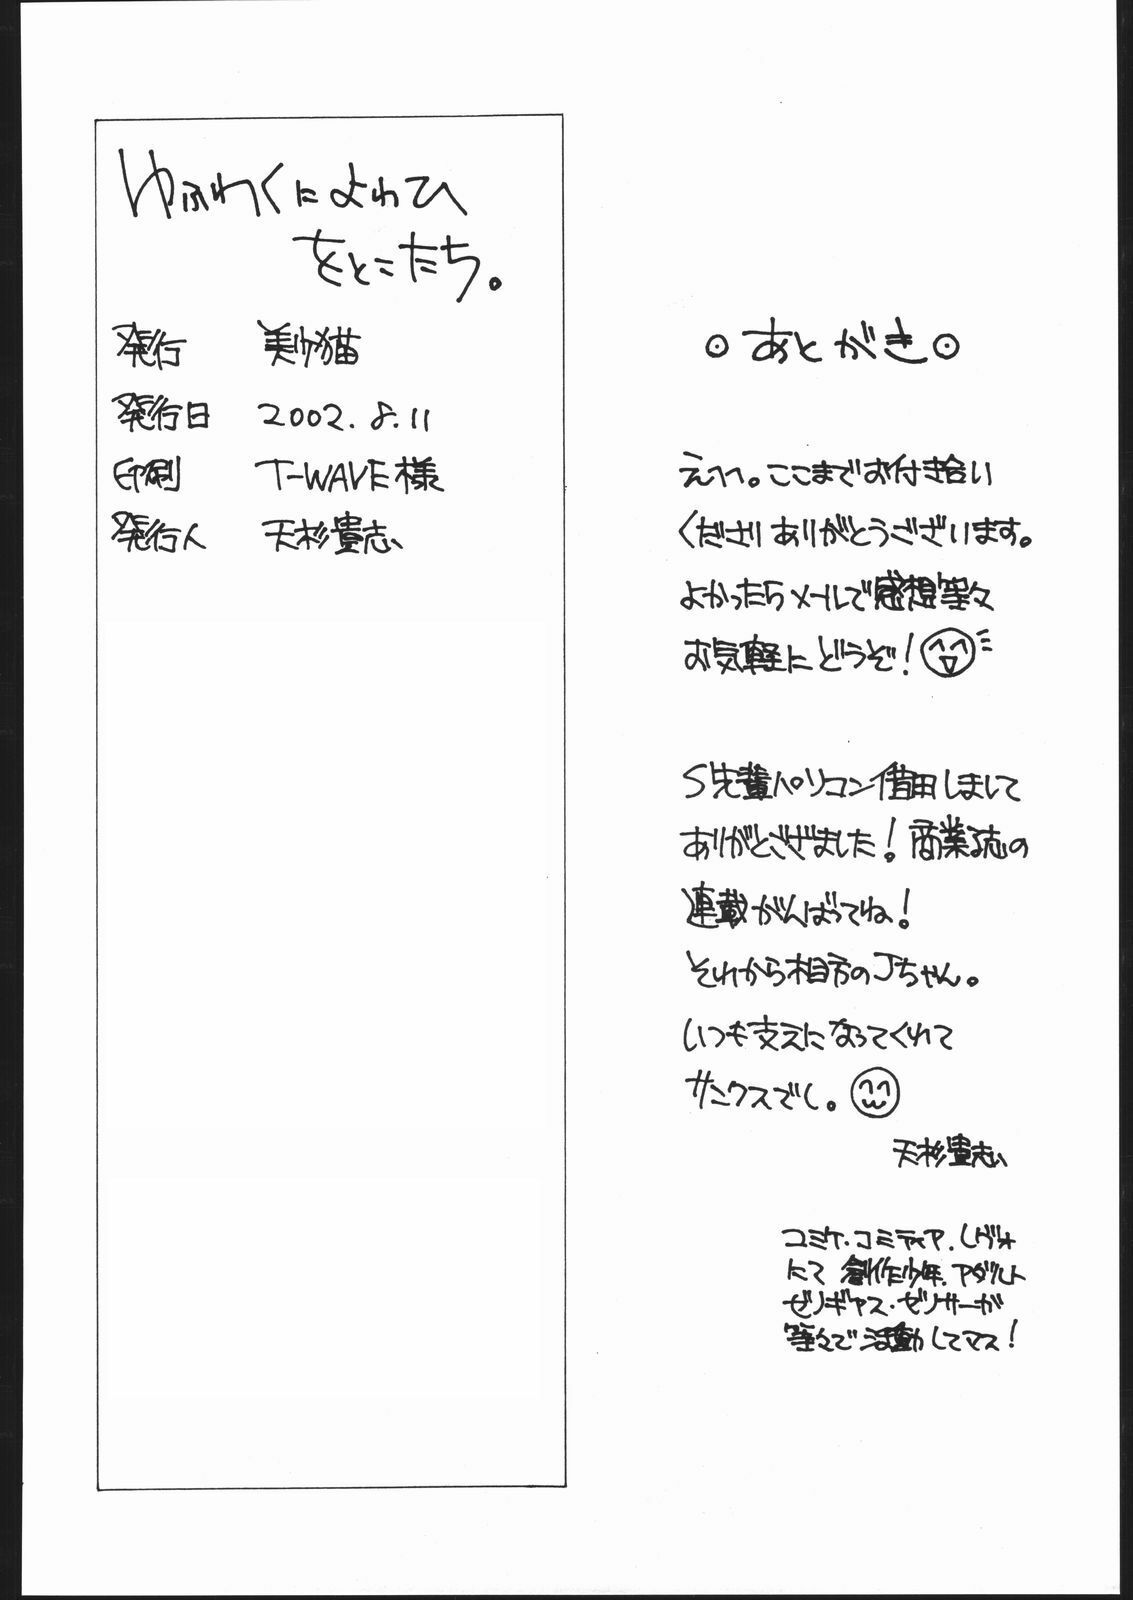 ゆふわくによわひ
をとこたち。
発行 美少猫
発行日 2002.8.11
印刷 T-WAVE様
発行人 天杉貴志
◎あとがき◎
えへへ。ここまでお付き合い
くださりありがとうございます。
よかったらメールで感想等々
お気軽にどうぞ!
S先輩パソコン借用しまして
ありがとござました!商業誌の
連載がんばってね!
それから相方のJちゃん。
いつも支えになってくれて
サンクスでし。
天杉貴志
コミケ・コミティア・レヴォ
にて創作少年、アダルト
ゼノギアス・ゼノサーガ
等々で活動してマス!